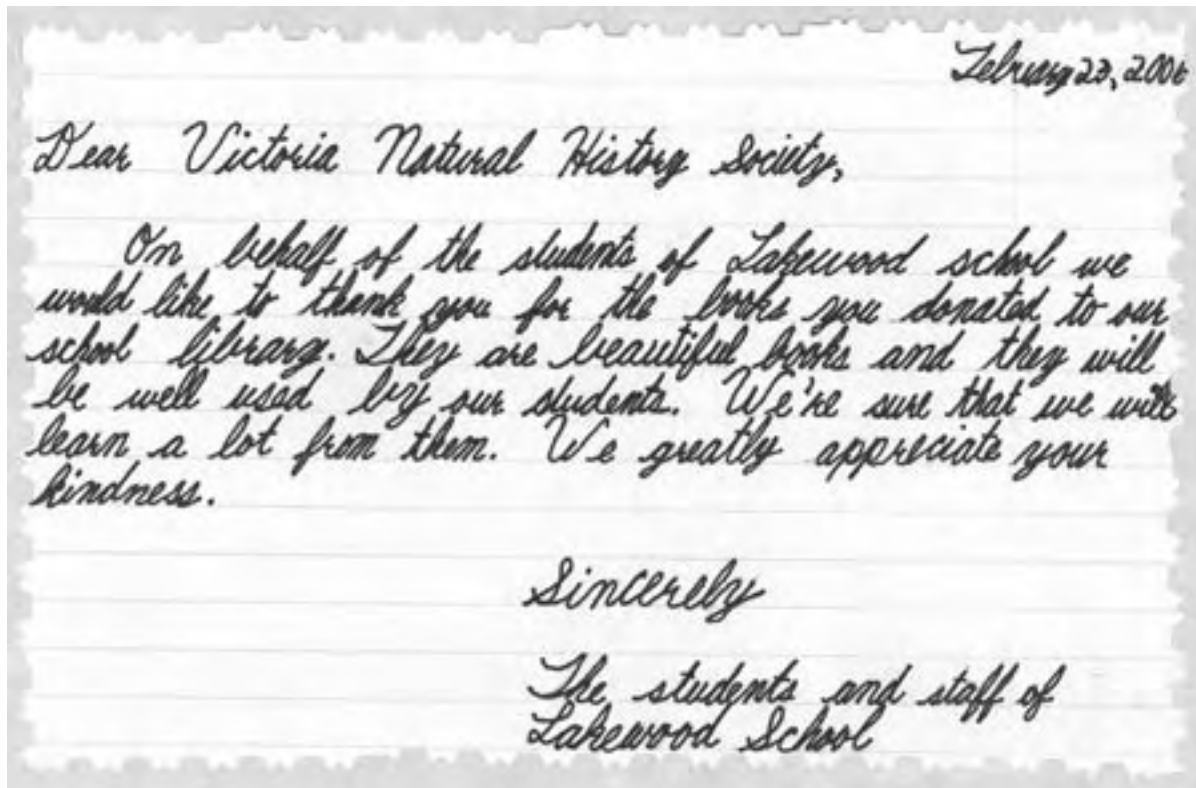 February 23, 2006
Dear Victoria Natural History Society,
On behalf of the students of Lakewood school we
would like to thank you for the books you donated to our
school library. They are beautiful books and they will
be well used by our students. We're sure that we will
learn a lot from them. We greatly appreciate your
kindness.
Sincerely
The students and staff of
Lakewood School